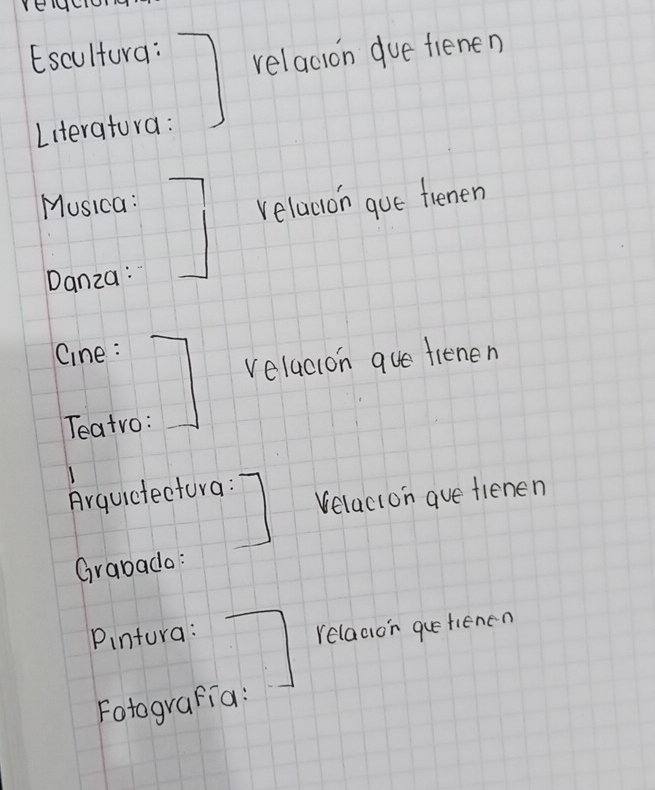 Escultura: relación que tienen
Literatura:
Musica: relación que tienen
Danza:
Cine: relación que tienen
Teatro:
Arquictectura: relación que tienen
Grabado:
Pintura: relación que tienen
Fotografía: